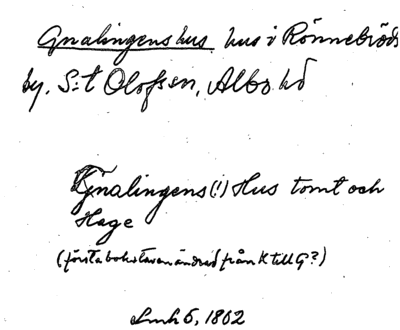 Gnalingens hus hus i Rönnebröds
by, S:t Olofs sn, Albo hd
Gnalingens (!) Hus tomt och
Hage
(första bokstaven ändrad från K till G?)
Lmh 5, 1802